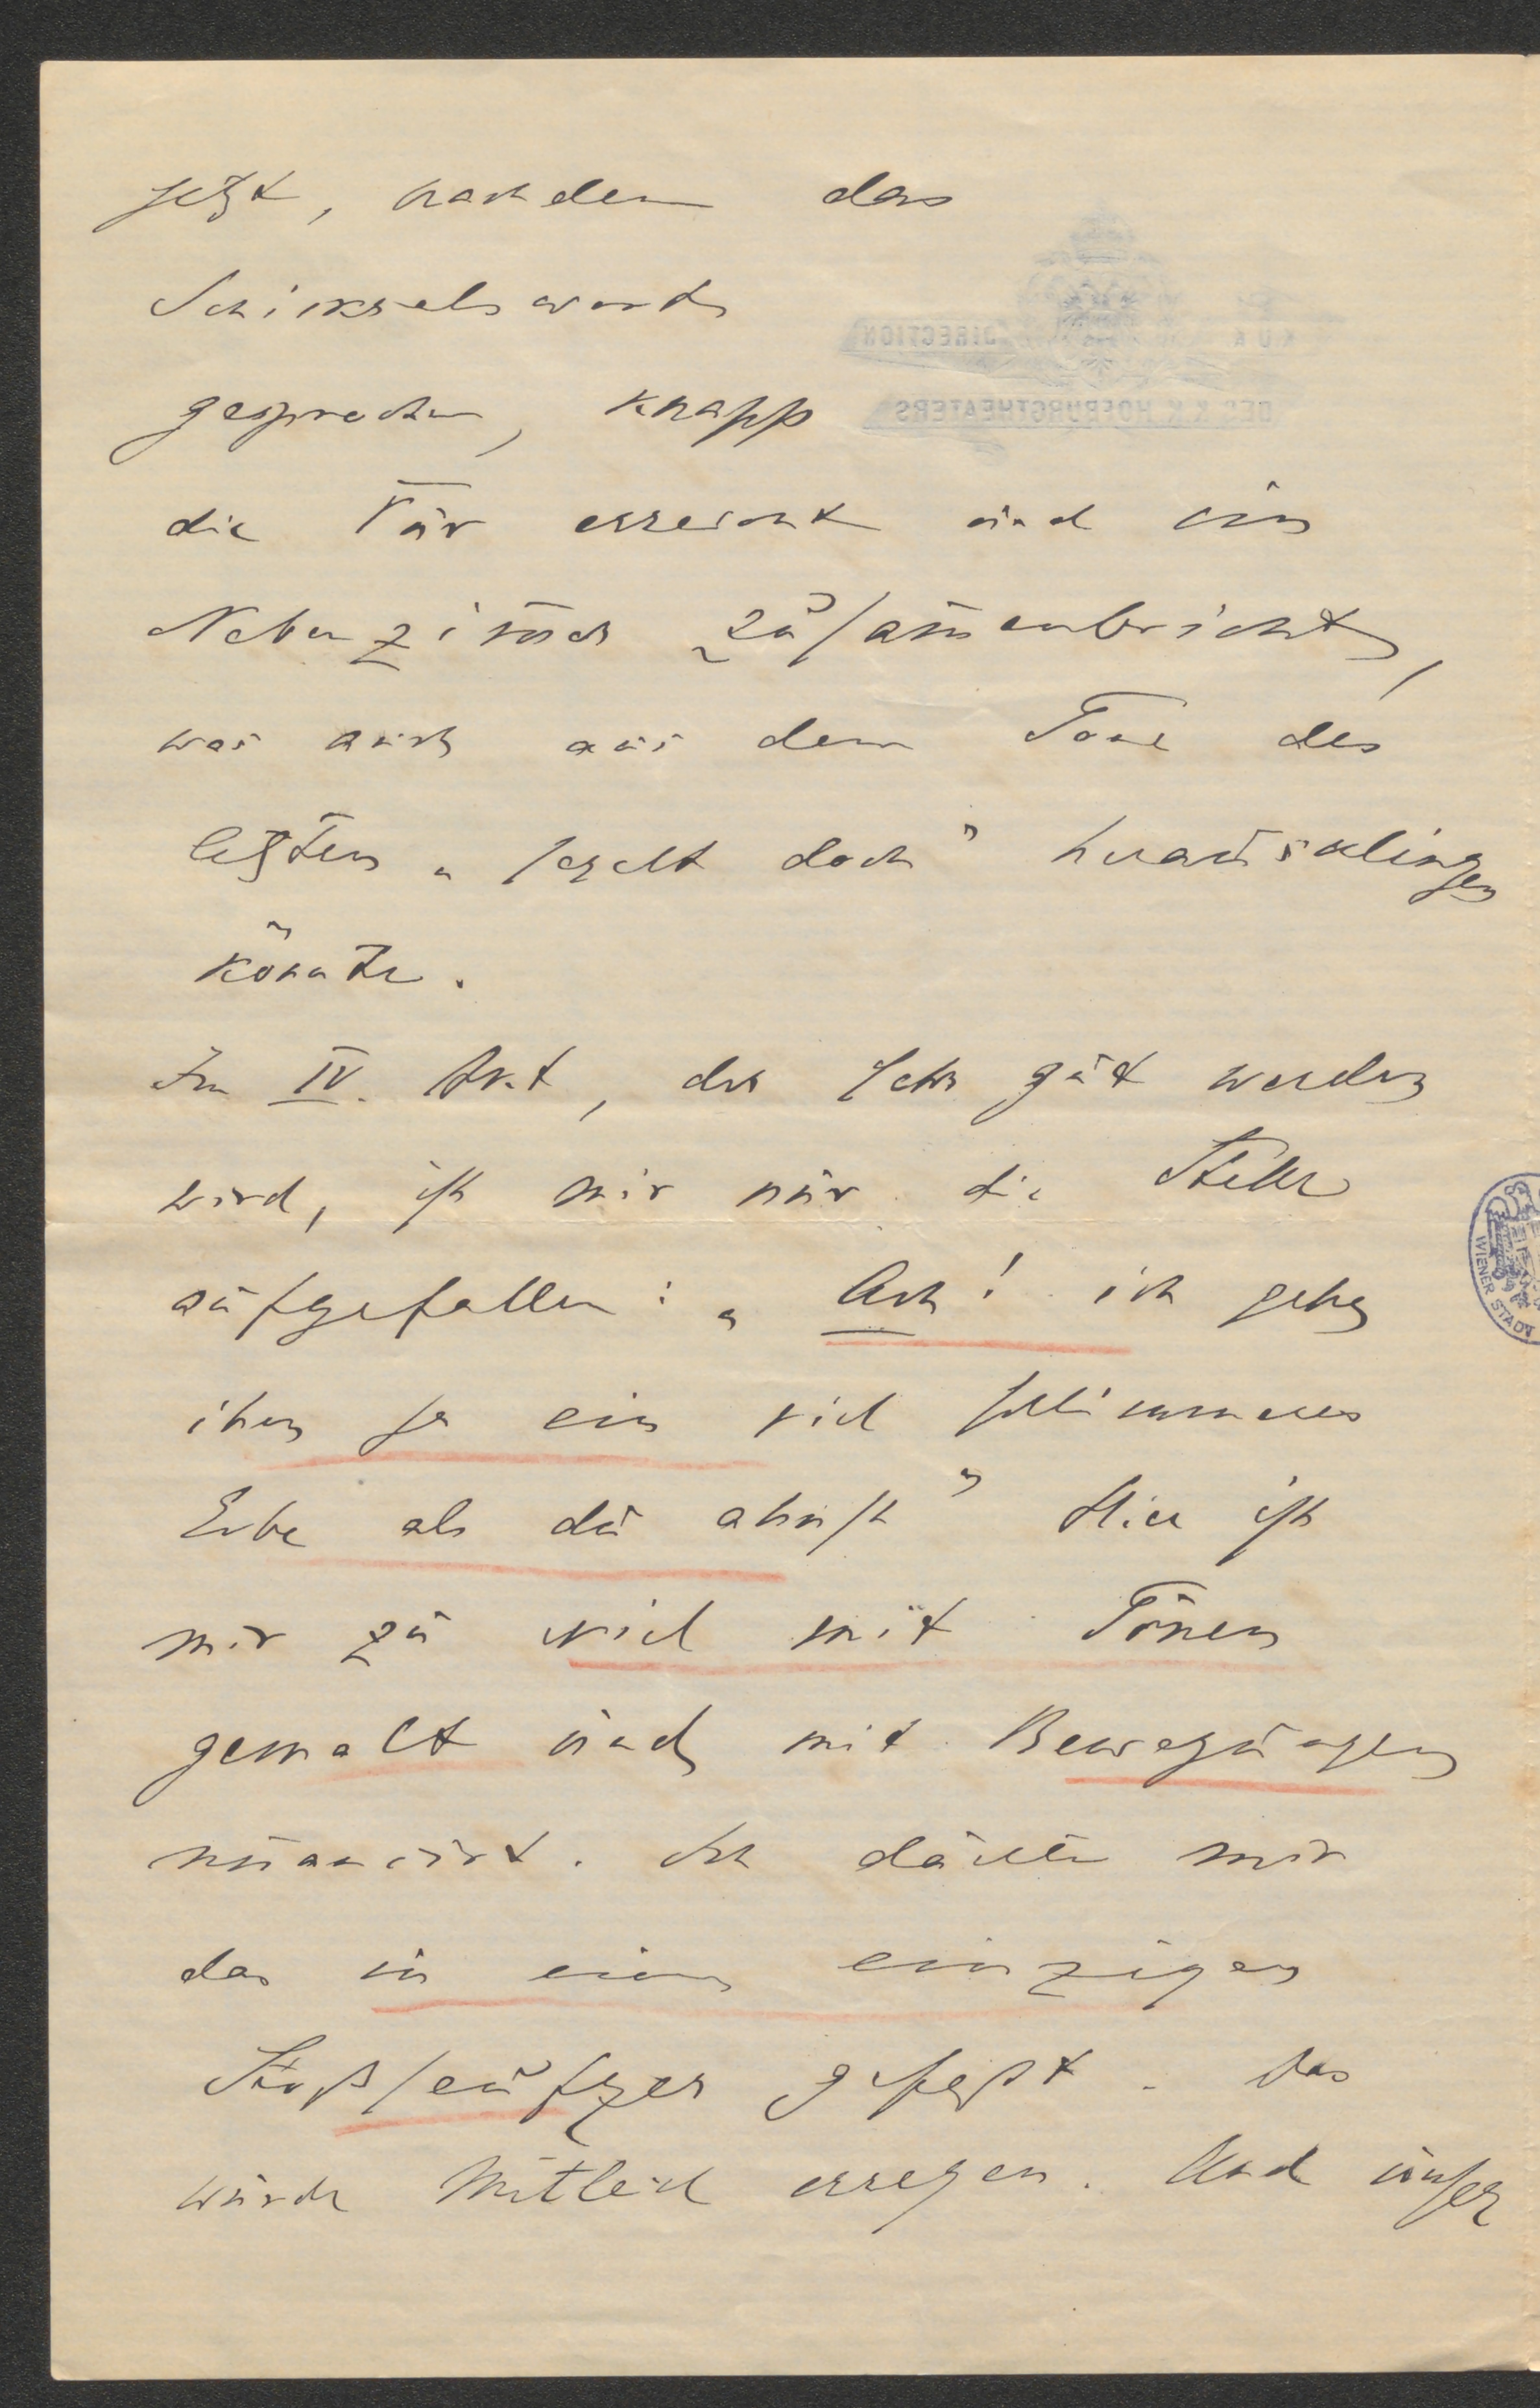 jetzt, nachdem das
Schicksalswort
gesprochen, knapp
die Tür erreicht und im
Nebenzimmer zusammenbricht,
was auch aus dem Tone des
letzten „ doch" herausklingen
könnte.
Im IV. Akt, der sehr gut werden
wird, ist mir nur die Stelle
aufgefallen: „Ach! ich gebe
ihm ja ein viel schlimmeres
Erbe als du ahnst" Hier ist
mir zu viel mit Tönen
gemalt und mit Bewegungen
nüancirt. Ich dächte mir
das in einen einzigen
Stoßseufzer gefaßt. Das
würde Mitleid erregen. Und unser
K U K DIRECTION
DES K. K. HOFBURGTHEATERS
WIENER STADT